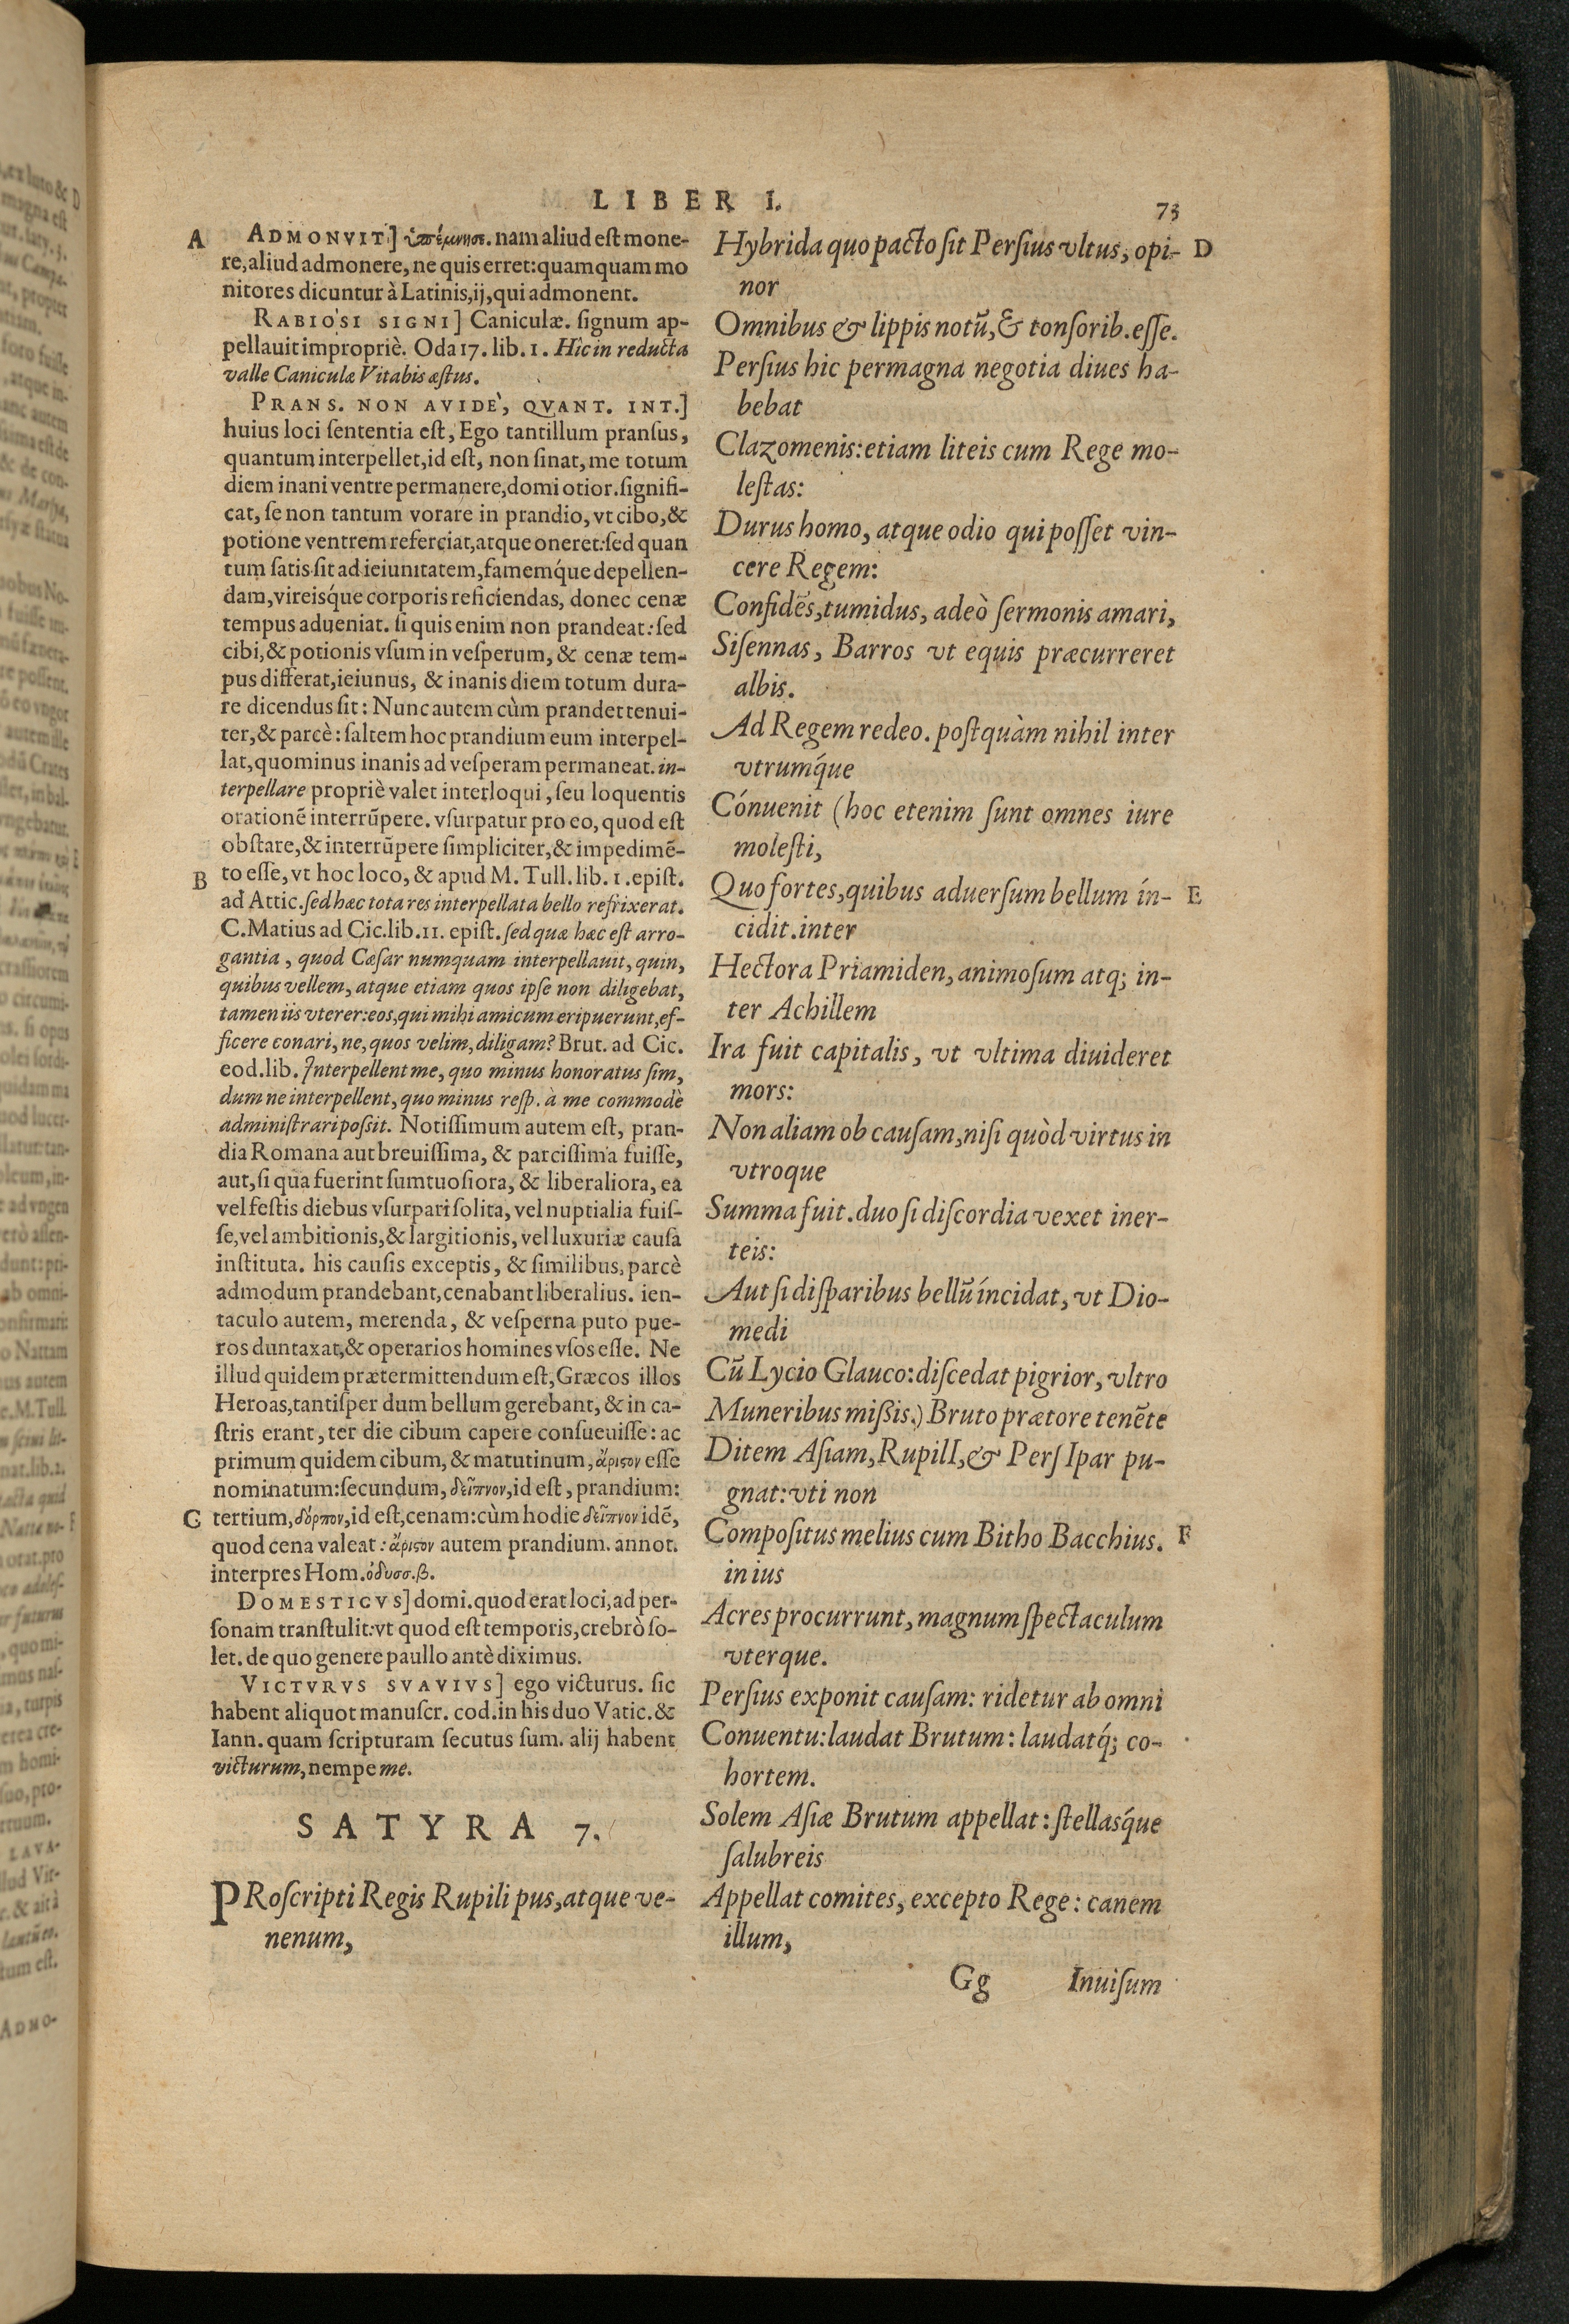 LIBER I.
73
A
ADMONVIT] ὑπέμνησε. nam aliud est mone-
re, aliud admonere, ne quis erret: quamquam mo
nitores dicuntur à Latinis, ij, qui admonent.
RABIOSI SIGNI] Caniculæ. signum ap-
pellauit impropriè. Oda 17. lib. 1. Hîc in reducta
valle Caniculæ Vitabis æstus.
PRANS. NON AVIDE', QVANT. INT.]
huius loci sententia est, Ego tantillum pransus,
quantum interpellet, id est, non sinat, me totum
diem inani ventre permanere, domi otior. signifi-
cat, se non tantum vorare in prandio, vt cibo, &
potione ventrem referciat, atque oneret: sed quan
tum satis sit ad ieiunitatem, famemq́ue depellen-
dam, vireisq́ue corporis reficiendas, donec cenæ
tempus adueniat. si quis enim non prandeat: sed
cibi, & potionis vsum in vesperum, & cenæ tem-
pus differat, ieiunus, & inanis diem totum dura-
re dicendus sit: Nunc autem cùm prandet tenui-
ter, & parcè: saltem hoc prandium eum interpel-
lat, quominus inanis ad vesperam permaneat. in-
terpellare propriè valet interloqui, seu loquentis
orationē interrūpere. vsurpatur pro eo, quod est
obstare, & interrūpere simpliciter, & impedimē-
B
to esse, vt hoc loco, & apud M. Tull. lib. 1. epist.
ad Attic. sed hæc tota res interpellata bello refrixerat.
C. Matius ad Cic. lib. 11. epist. sed quæ hæc est arro-
gantia, quod Cæsar numquam interpellauit, quin,
quibus vellem, atque etiam quos ipse non diligebat,
tamen iis vterer: eos, qui mihi amicum eripuerunt, ef-
ficere conari, ne, quos velim, diligam? Brut. ad Cic.
eod. lib. Interpellent me, quo minus honoratus sim,
dum ne interpellent, quo minus resp. à me commodè
administrari possit. Notissimum autem est, pran-
dia Romana aut breuissima, & parcissima fuisse,
aut, si qua fuerint sumtuosiora, & liberaliora, ea
vel festis diebus vsurpari solita, vel nuptialia fuis-
se, vel ambitionis, & largitionis, vel luxuriæ causa
instituta. his causis exceptis, & similibus, parcè
admodum prandebant, cenabant liberalius. ien-
taculo autem, merenda, & vesperna puto pue-
ros duntaxat, & operarios homines vsos esse. Ne
illud quidem prætermittendum est, Græcos illos
Heroas, tantisper dum bellum gerebant, & in ca-
stris erant, ter die cibum capere consueuisse: ac
primum quidem cibum, & matutinum, ἄριστον esse
nominatum: secundum, δεῖπνον, id est, prandium:
C
tertium, δόρπον, id est, cenam: cùm hodie δεῖπνον idē,
quod cena valeat: ἄριστον autem prandium. annot.
interpres Hom. ὀδυσσ. β.
DOMESTICVS] domi. quod erat loci, ad per-
sonam transtulit: vt quod est temporis, crebrò so-
let. de quo genere paullo antè diximus.
VICTVRVS SVAVIVS] ego victurus. sic
habent aliquot manuscr. cod. in his duo Vatic. &
Iann. quam scripturam secutus sum. alij habent
victurum, nempe me.
SATYRA 7.
PRoscripti Regis Rupili pus, atque ve-
nenum,
Hybrida quo pacto sit Persius vltus, opi-
D
nor
Omnibus & lippis notū, & tonsorib. esse.
Persius hic permagna negotia diues ha-
bebat
Clazomenis: etiam liteis cum Rege mo-
lestas:
Durus homo, atque odio qui posset vin-
cere Regem:
Confidēs, tumidus, adeò sermonis amari,
Sisennas, Barros vt equis præcurreret
albis.
Ad Regem redeo. postquàm nihil inter
vtrumq́ue
Cónuenit (hoc etenim sunt omnes iure
molesti,
Quo fortes, quibus aduersum bellum ín-
E
cidit. inter
Hectora Priamiden, animosum atq; in-
ter Achillem
Ira fuit capitalis, vt vltima diuideret
mors:
Non aliam ob causam, nisi quòd virtus in
vtroque
Summa fuit. duo si discordia vexet iner-
teis:
Aut si disparibus bellū íncidat, vt Dio-
medi
Cū Lycio Glauco: discedat pigrior, vltro
Muneribus missis.) Bruto prætore tenēte
Ditem Asiam, RupilI, & PersI par pu-
gnat: vti non
Compositus melius cum Bitho Bacchius.
F
in ius
Acres procurrunt, magnum spectaculum
vterque.
Persius exponit causam: ridetur ab omni
Conuentu: laudat Brutum: laudatq́; co-
hortem.
Solem Asiæ Brutum appellat: stellasq́ue
salubreis
Appellat comites, excepto Rege: canem
illum,
Gg
Inuisum